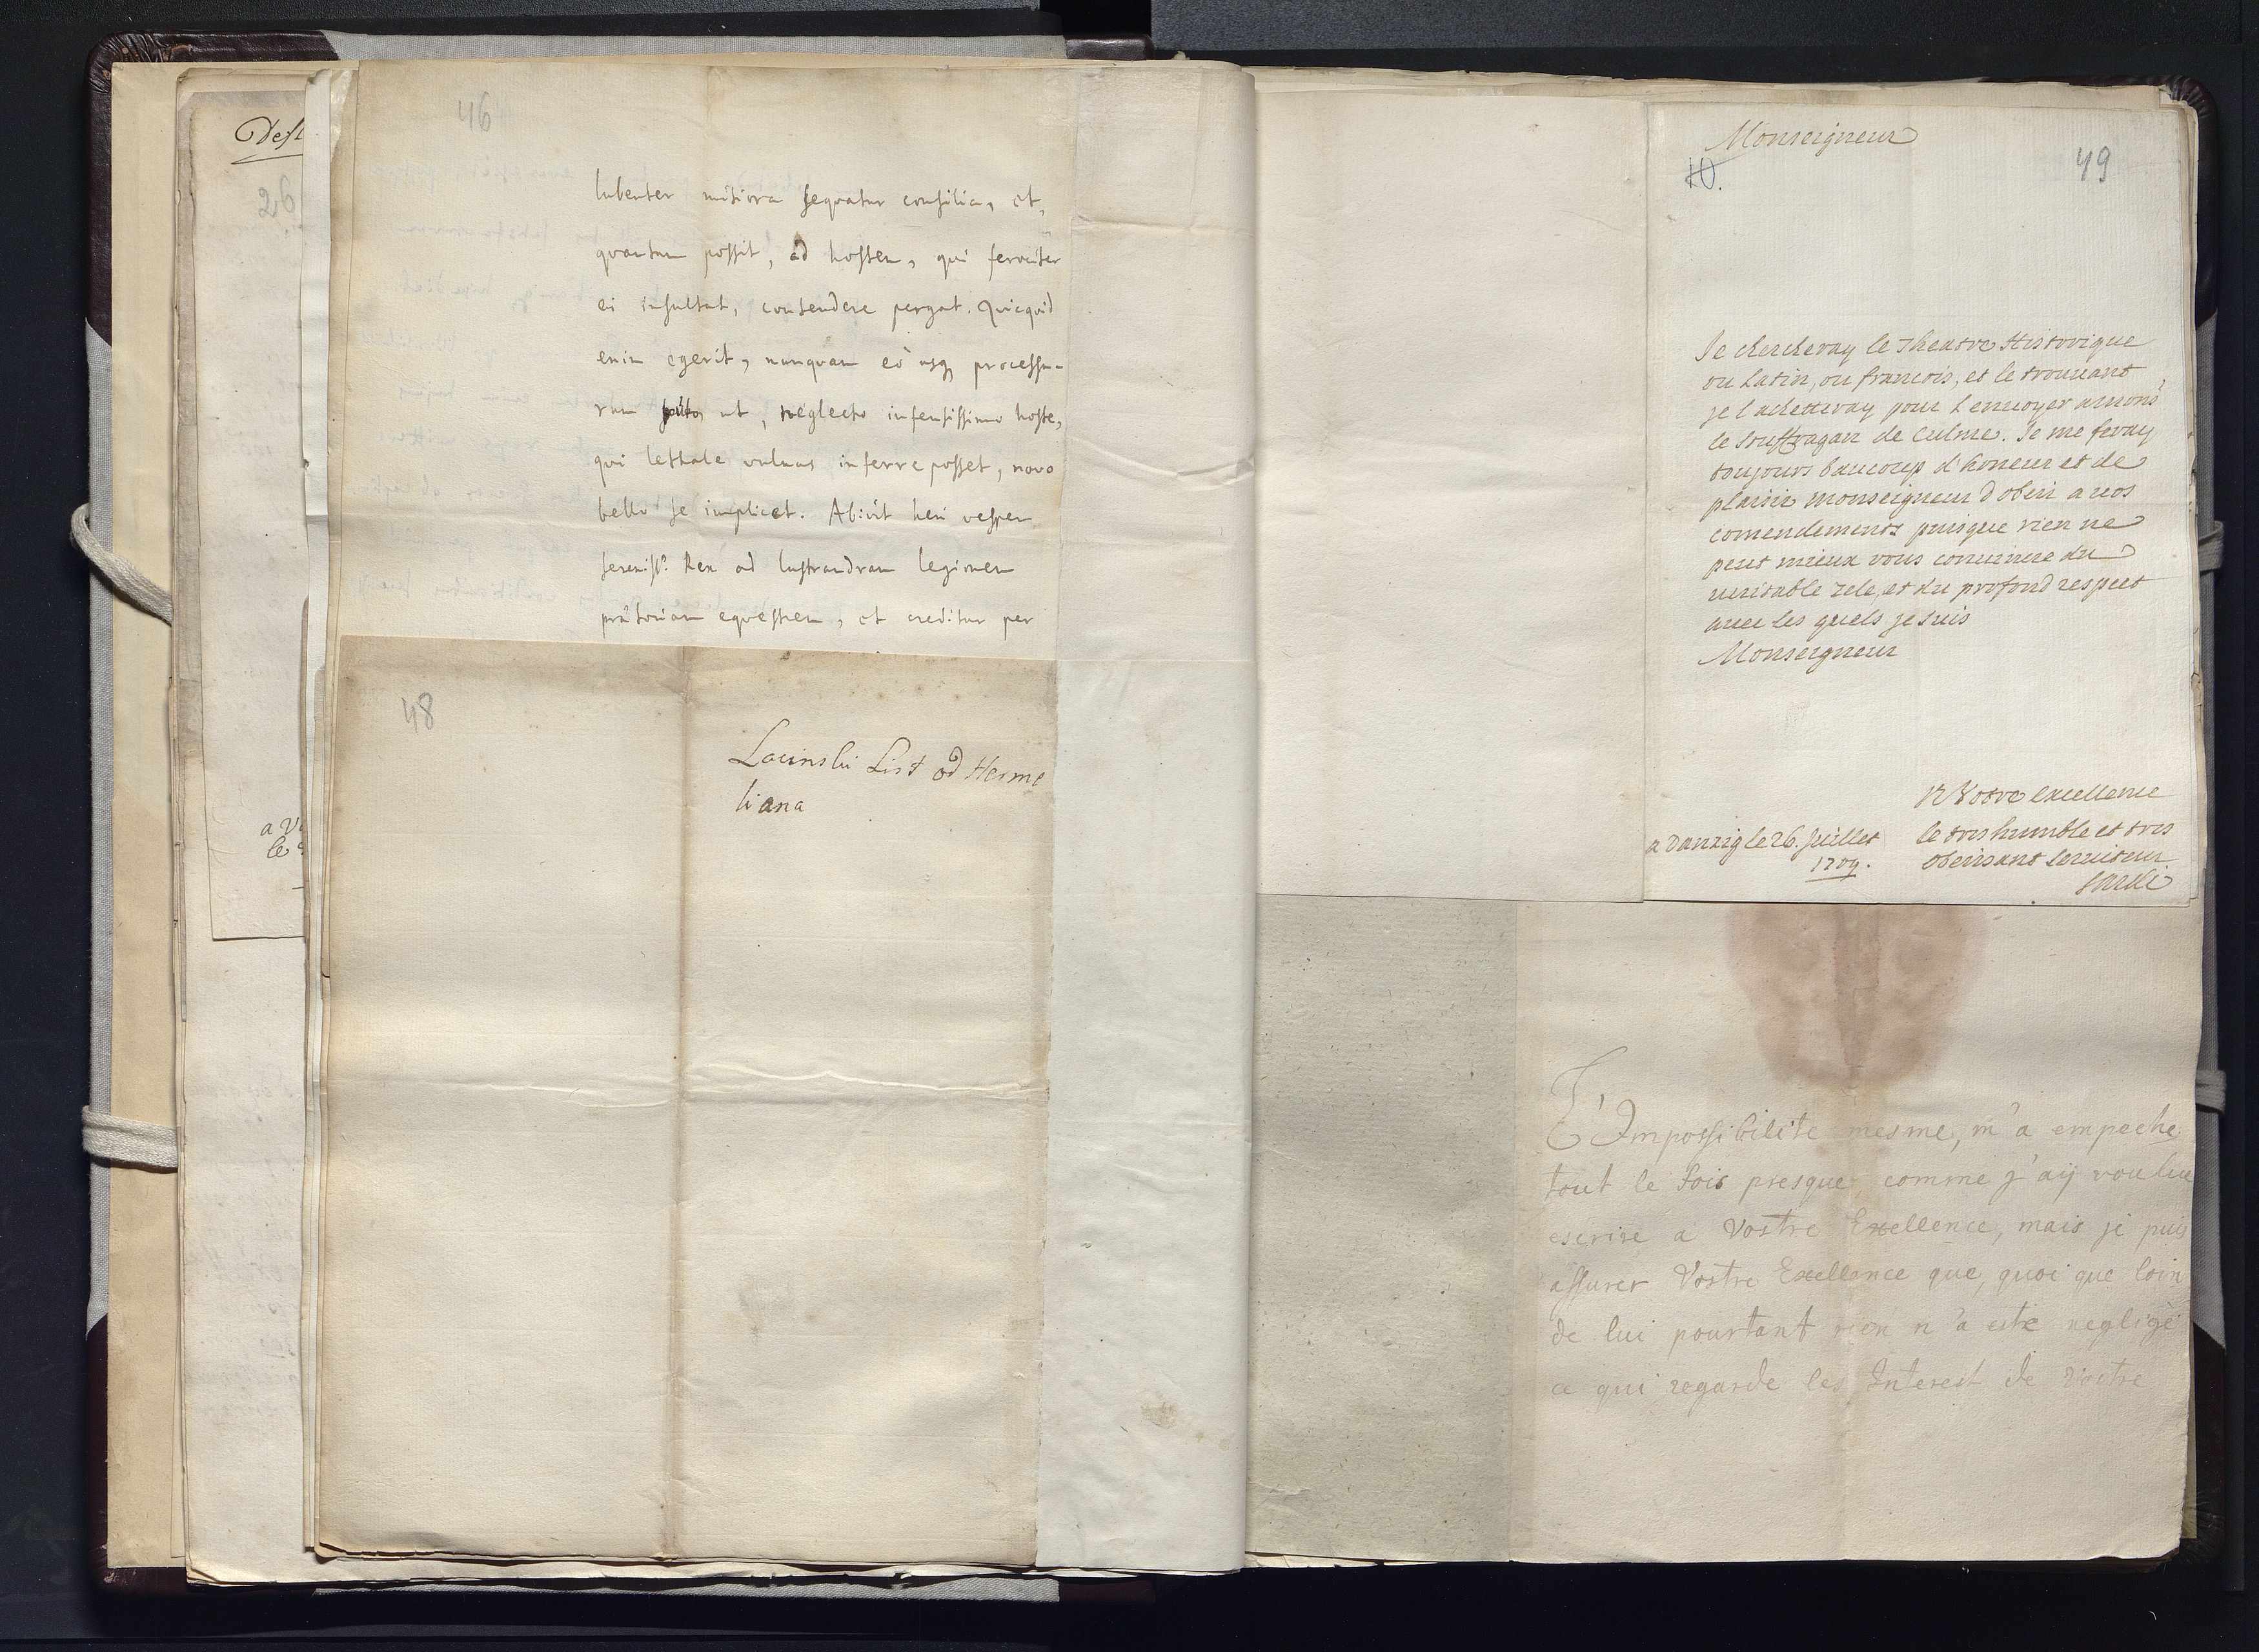 Des
26
a V
le
46
lubenter mitiora sequatur consilia, et,
quantum possit, ad hostem, qui ferociter
ei insultat, contendere pergat. Quicquid
enim egerit, nunquam eò usq processu-
rum puto, ut, neglecto infensissimo hoste,
qui lethale vulnus inferre posset, novo
bello se implicet. Abivit heri vesperi
sereniss. Rex ad lustrandram legionem
prætoriam equestrem, et creditur per
48
Lacinski List od Herme
liana
Monseigneur
49
10.
Je chercheray le Theatre Historique
ou Latin, ou francois, et le trouuant
je l achetteray pour l enuoyer a mons
le souffragan de Culme. Je me feray
toujours baucoup d honeur et de
plaisir Monseigneur d obeir a vos
comendements puisque rien ne
peut mieux vous conuincre du
ueritable zele, et du profond respect
auec les quels je suis
Monseigneur
Votre excellence
a Danzig le 26. Juillet le tres humble et tres
1709. obeissant seruiteur
L'Impossibilite mesme, m'a empeche
tout le fois presque comme j'aÿ voulu
escrire a Vostre Exellence, mais je puis
assurer Vostre Exellence que, quoi que loin
de lui pourtant rien n'a esté negligé
ce qui regarde les Interest de Vostre